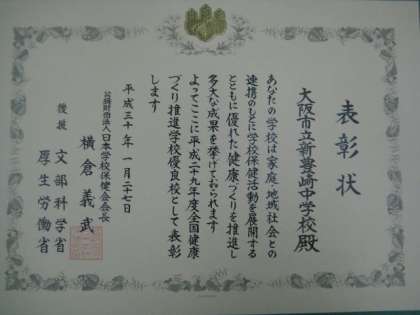 表彰状
大阪市立新豊崎中学校殿
あなたの学校は家庭・地域社会との
連携のもとに学校保健活動を展開する
とともに優れた健康づくりを推進し
多大な成果を挙げておられます
よってここに平成二十九年度全国健康
づくり推進学校優良校として表彰
します
平成三十年一月二十七日
公益財団法人日本学校保健会会長
横倉義武
後援 文部科学省
厚生労働省